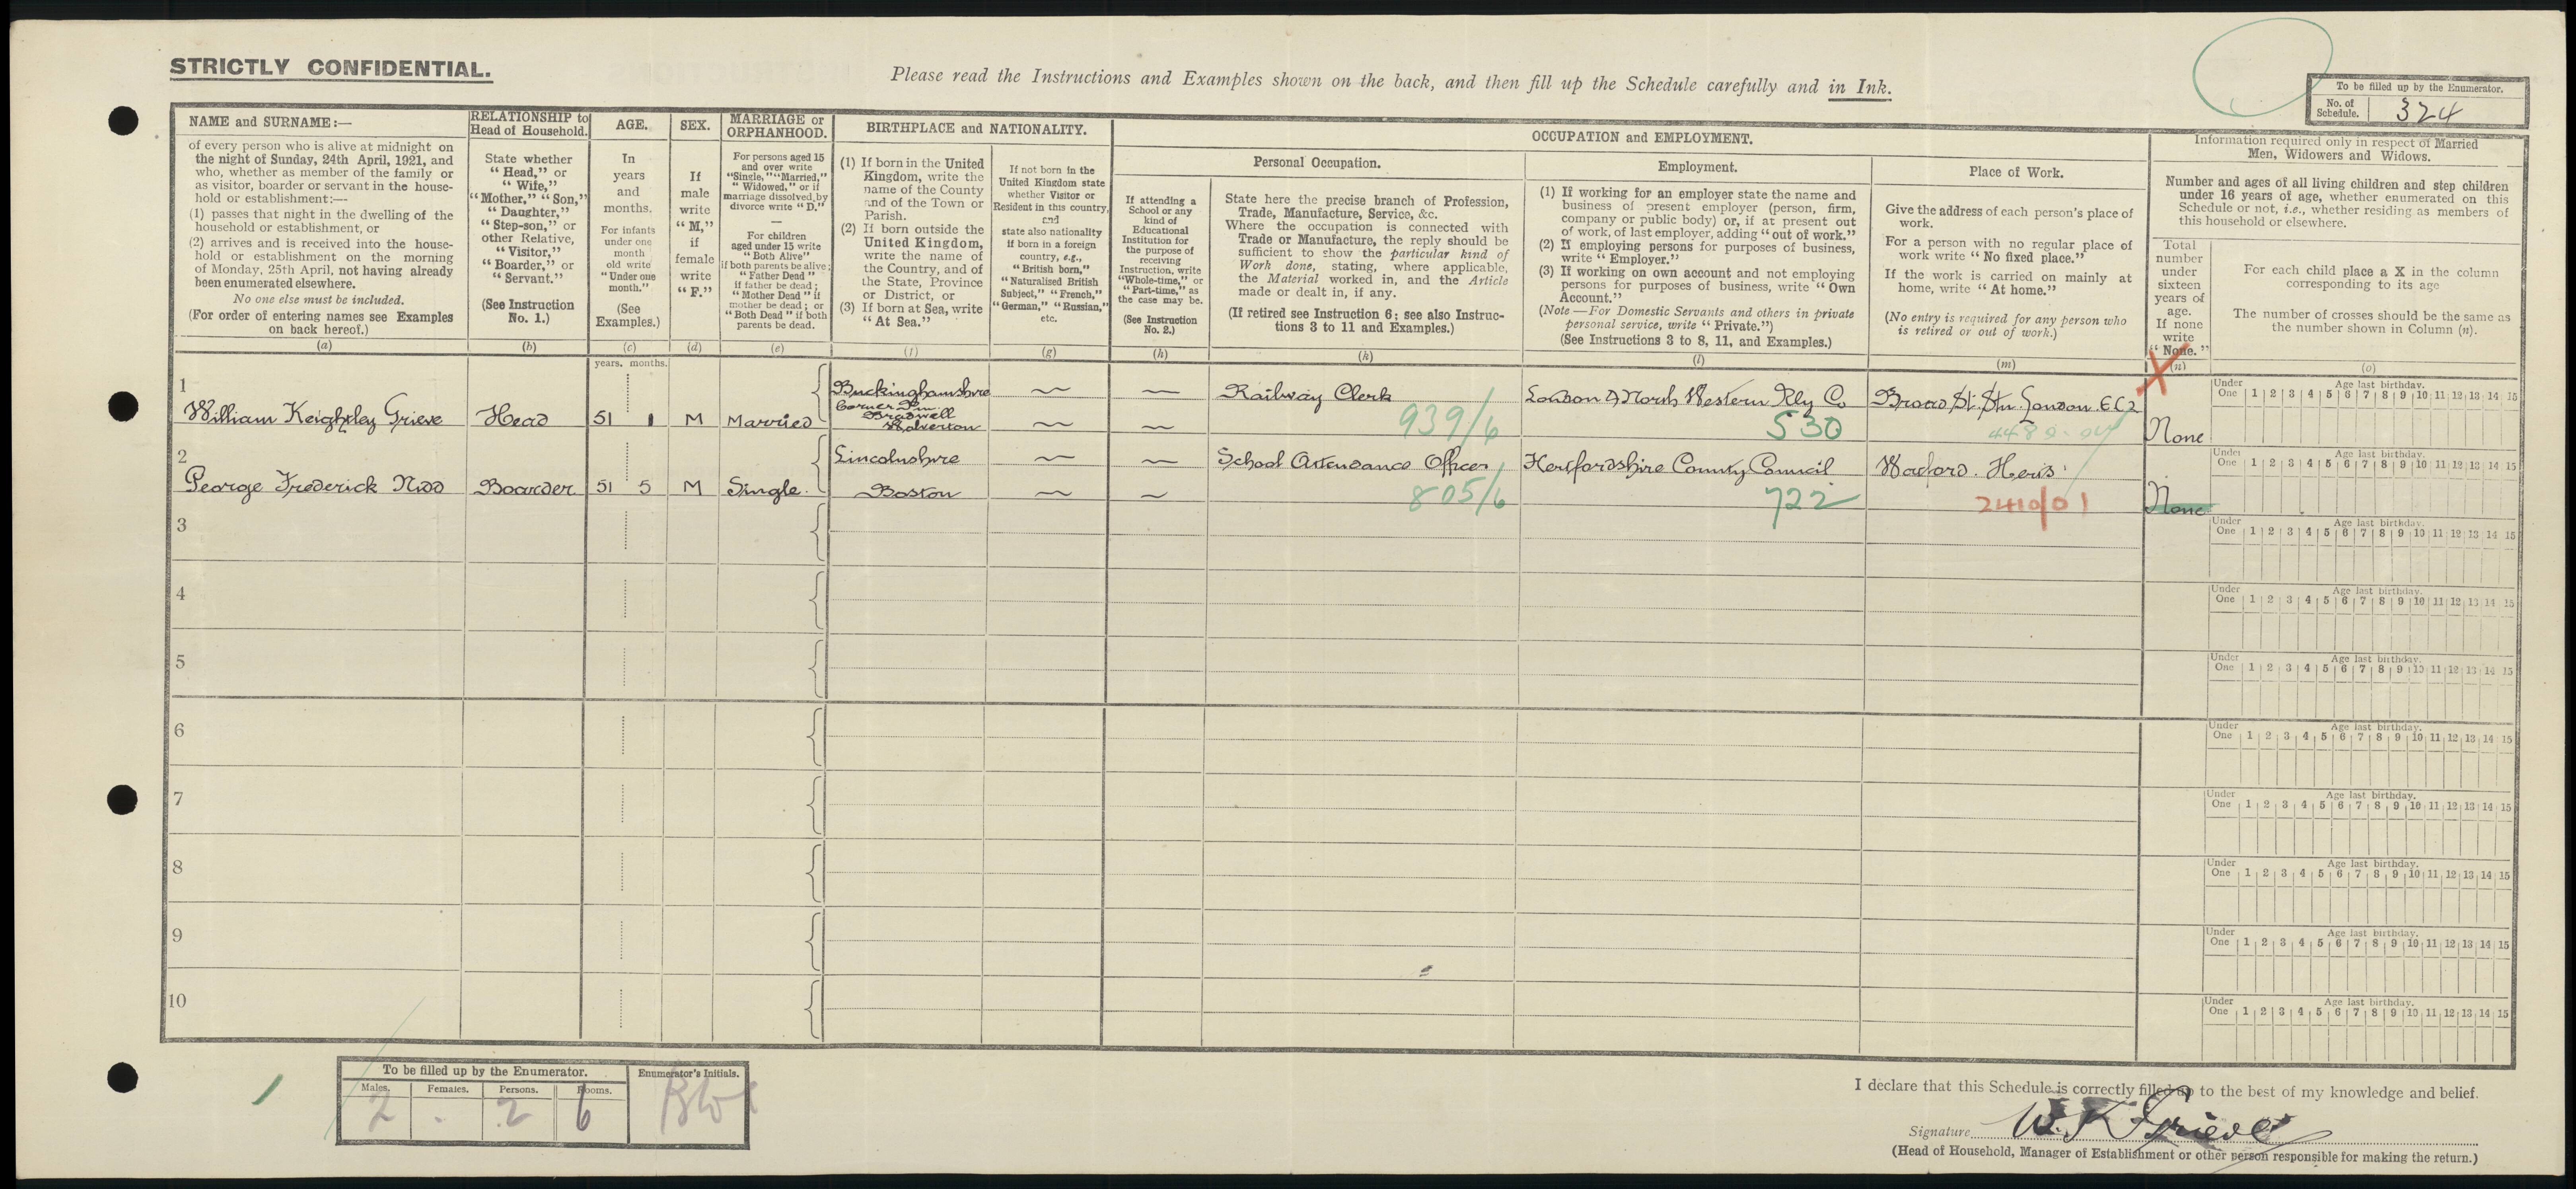 STRICTLY CONFIDENTIAL.
Please read the Instructions and Examples shown on the back, and then fill up the Schedule carefully and in Ink.
To be filled up by the Enumerator.
No. of Schedule. 324
NAME and SURNAME:—
of every person who is alive at midnight on
the night of Sunday, 24th April, 1921, and
who, whether as member of the family or
as visitor, boarder or servant in the house-
hold or establishment:—
(1) passes that night in the dwelling of the
household or establishment, or
(2) arrives and is received into the house-
hold or establishment on the morning
of Monday, 25th April, not having already
been enumerated elsewhere.
No one else must be included.
(For order of entering names see Examples
on back hereof.)
(a)
RELATIONSHIP to
Head of Household.
State whether
"Head," or
"Wife,"
"Mother," "Son,"
"Daughter,"
"Step-son," or
other Relative,
"Visitor,"
"Boarder," or
"Servant."
(See Instruction
No. 1.)
(b)
AGE.
In
years
and
months.
For infants
under one
month
old write
"Under one
month."
(See
Examples.)
(c)
SEX.
If
male
write
"M,"
if
female
write
"F."
(d)
MARRIAGE or
ORPHANHOOD.
For persons aged 15
and over write
"Single," "Married,"
"Widowed," or if
marriage dissolved by
divorce write "D."
—
For children
aged under 15 write
"Both Alive"
if both parents be alive;
"Father Dead"
if father be dead;
"Mother Dead" if
mother be dead; or
"Both Dead" if both
parents be dead.
(e)
BIRTHPLACE and NATIONALITY.
(1) If born in the United
Kingdom, write the
name of the County
and of the Town or
Parish.
(2) If born outside the
United Kingdom,
write the name of
the Country, and of
the State, Province
or District, or
(3) If born at Sea, write
"At Sea."
(f)
If not born in the
United Kingdom state
whether Visitor or
Resident in this country,
and
state also nationality
if born in a foreign
country, e.g.,
"British born,"
"Naturalised British
Subject," "French,"
"German," "Russian,"
etc.
(g)
OCCUPATION and EMPLOYMENT.
Personal Occupation.
If attending a
School or any
kind of
Educational
Institution for
the purpose of
receiving
Instruction, write
"Whole-time," or
"Part-time," as
the case may be.
(See Instruction
No. 2.)
(h)
State here the precise branch of Profession,
Trade, Manufacture, Service, &c.
Where the occupation is connected with
Trade or Manufacture, the reply should be
sufficient to show the particular kind of
Work done, stating, where applicable,
the Material worked in, and the Article
made or dealt in, if any.
(If retired see Instruction 6; see also Instruc-
tions 3 to 11 and Examples.)
(k)
Employment.
(1) If working for an employer state the name and
business of present employer (person, firm,
company or public body) or, if at present out
of work, of last employer, adding "out of work."
(2) If employing persons for purposes of business,
write "Employer."
(3) If working on own account and not employing
persons for purposes of business, write "Own
Account."
(Note—For Domestic Servants and others in private
personal service, write "Private.")
(See Instructions 3 to 8, 11, and Examples.)
(l)
Place of Work.
Give the address of each person's place of
work.
For a person with no regular place of
work write "No fixed place."
If the work is carried on mainly at
home, write "At home."
(No entry is required for any person who
is retired or out of work.)
(m)
Information required only in respect of Married
Men, Widowers and Widows.
Number and ages of all living children and step children
under 16 years of age, whether enumerated on this
Schedule or not, i.e., whether residing as members of
this household or elsewhere.
Total
number
under
sixteen
years of
age.
If none
write
"None."
(n)
For each child place a X in the column
corresponding to its age
The number of crosses should be the same as
the number shown in Column (n).
(o)
years. months.
1
William Keighley Grieve Head 51 1 M Married
Buckinghamshire
Corner Pin
Bradwell
Wolverton
Railway Clerk 939/6
London & North Western Rly Co 530
Broad St. Stn. London. E.C.2
None
Under One 1 2 3 4 5 6 7 8 9 10 11 12 13 14 15 Age last birthday.
2
George Frederick Nidd Boarder 51 5 M Single.
Lincolnshire
Boston
School Attendance Officer 805/6
Hertfordshire County Council 722
Watford. Herts.
2410/01
None
Under One 1 2 3 4 5 6 7 8 9 10 11 12 13 14 15 Age last birthday.
3
Under One 1 2 3 4 5 6 7 8 9 10 11 12 13 14 15 Age last birthday.
4
Under One 1 2 3 4 5 6 7 8 9 10 11 12 13 14 15 Age last birthday.
5
Under One 1 2 3 4 5 6 7 8 9 10 11 12 13 14 15 Age last birthday.
6
Under One 1 2 3 4 5 6 7 8 9 10 11 12 13 14 15 Age last birthday.
7
Under One 1 2 3 4 5 6 7 8 9 10 11 12 13 14 15 Age last birthday.
8
Under One 1 2 3 4 5 6 7 8 9 10 11 12 13 14 15 Age last birthday.
9
Under One 1 2 3 4 5 6 7 8 9 10 11 12 13 14 15 Age last birthday.
10
Under One 1 2 3 4 5 6 7 8 9 10 11 12 13 14 15 Age last birthday.
To be filled up by the Enumerator.
Males. Females. Persons. Rooms.
2 . 2 6
Enumerator's Initials.
I declare that this Schedule is correctly filled up to the best of my knowledge and belief.
Signature W. K Grieve
(Head of Household, Manager of Establishment or other person responsible for making the return.)